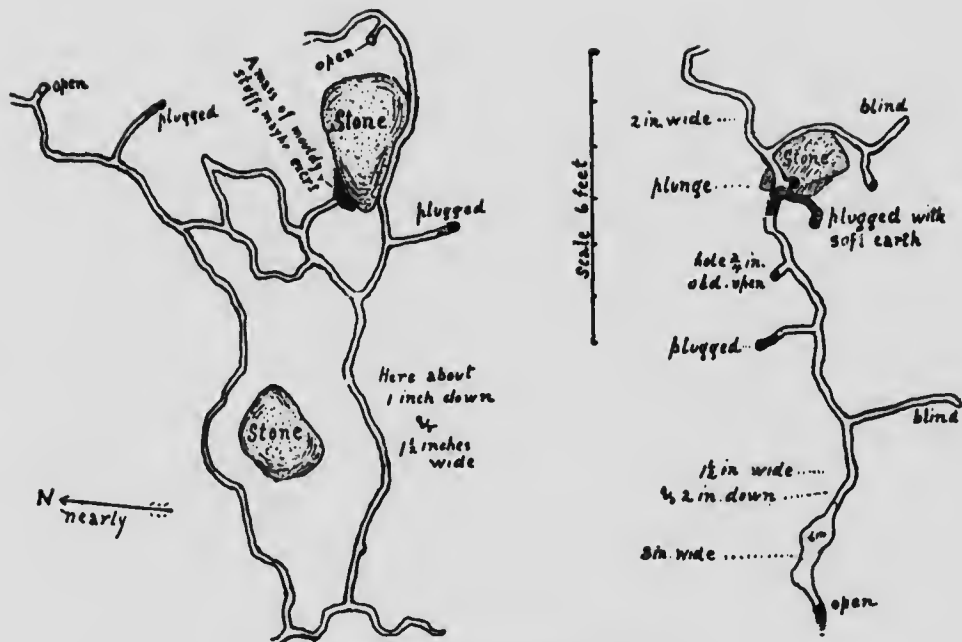 open
plugged
A mass of mouldy
stuff, maybe excrs
open
Stone
plugged
Stone
Here about
1 inch down
&
1½ inches
wide
N
nearly
Scale 6 feet
2 in. wide
blind
Stone
plunge
plugged with
soft earth
hole ¾ in.
open
plugged
blind
1½ in wide
& 2 in. down
3 in. wide
open